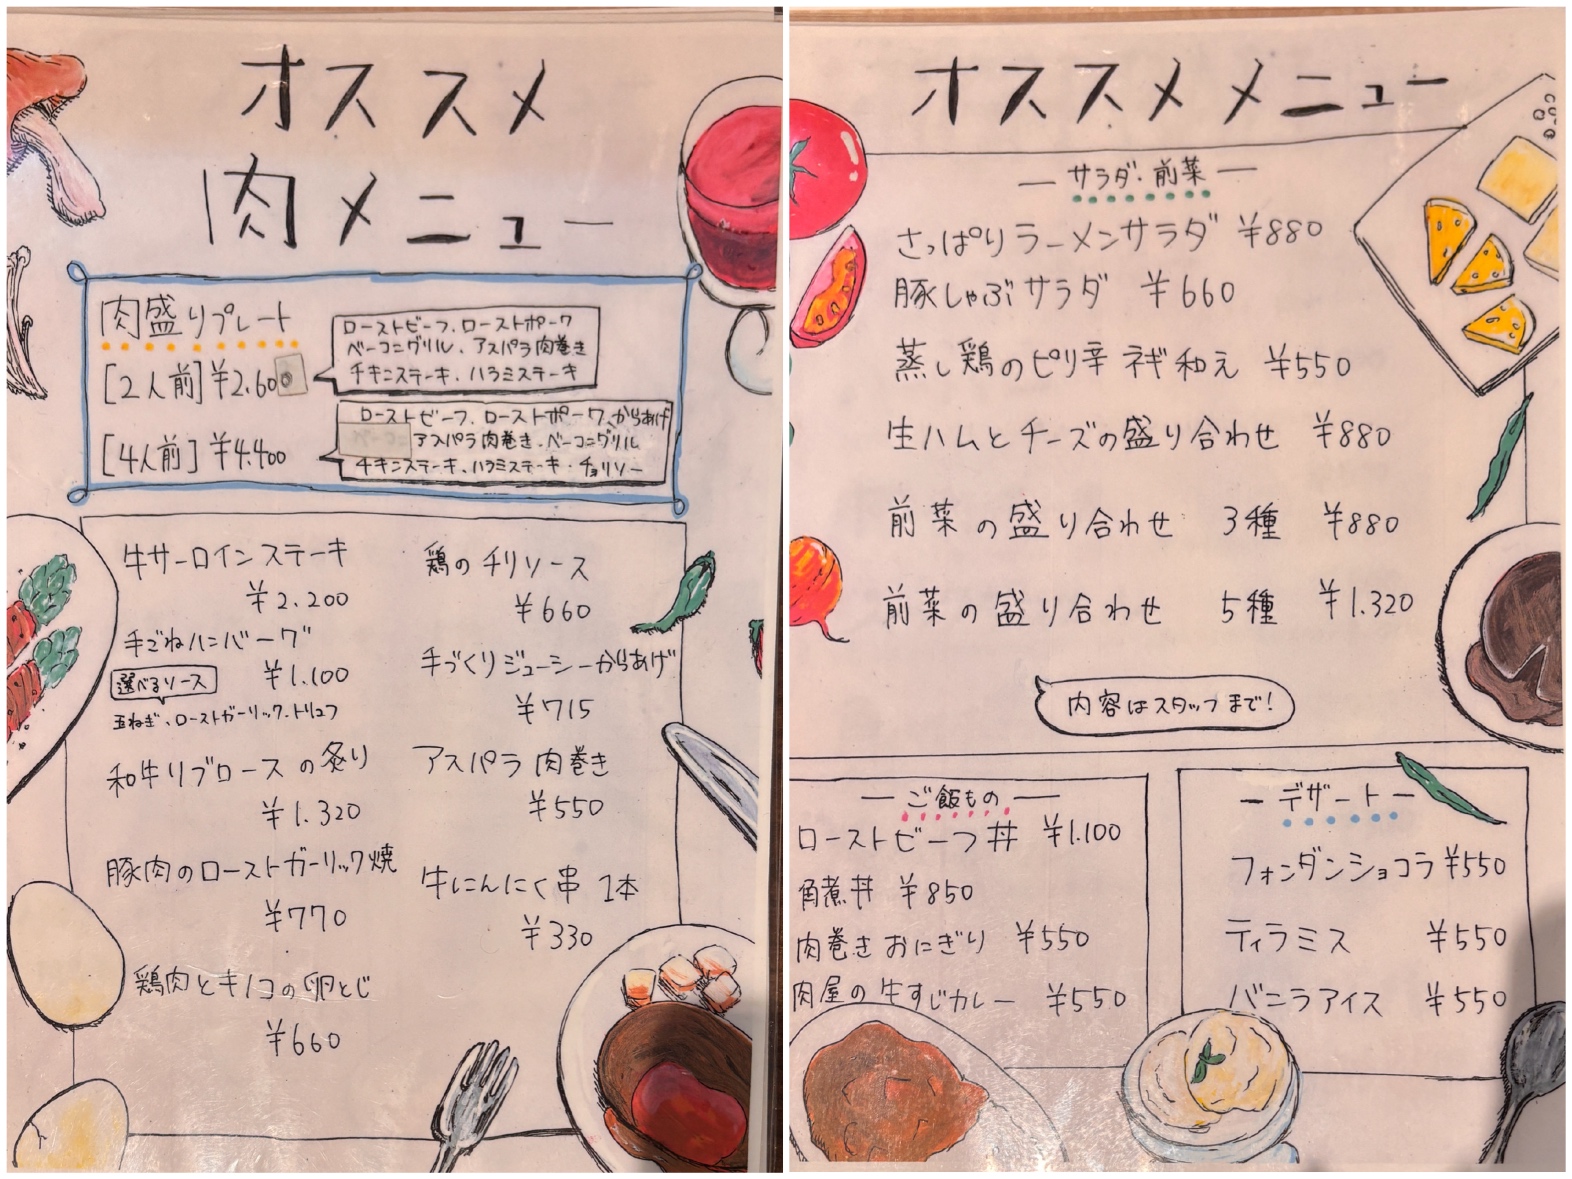 オススメ
肉メニュー
肉盛りプレート
[2人前]¥2.600
ローストビーフ、ローストポーク
ベーコングリル、アスパラ肉巻き
チキンステーキ、ハラミステーキ
[4人前]¥4.400
ローストビーフ、ローストポーク、からあげ
アスパラ肉巻き、ベーコングリル
チキンステーキ、ハラミステーキ・チョリソー
牛サーロインステーキ
¥2.200
手ごねハンバーグ
¥1.100
選べるソース
玉ねぎ、ローストガーリック、トリュフ
和牛リブロースの炙り
¥1.320
豚肉のローストガーリック焼
¥770
鶏肉とキノコの卵とじ
¥660
鶏のチリソース
¥660
手づくりジューシーからあげ
¥715
アスパラ肉巻き
¥550
牛にんにく串 1本
¥330
オススメメニュー
サラダ・前菜
さっぱりラーメンサラダ ¥880
豚しゃぶサラダ ¥660
蒸し鶏のピリ辛ネギ和え ¥550
生ハムとチーズの盛り合わせ ¥880
前菜の盛り合わせ 3種 ¥880
前菜の盛り合わせ 5種 ¥1.320
内容はスタッフまで!
ご飯もの
ローストビーフ丼 ¥1.100
角煮丼 ¥850
肉巻きおにぎり ¥550
肉屋の牛すじカレー ¥550
デザート
フォンダンショコラ ¥550
ティラミス ¥550
バニラアイス ¥550